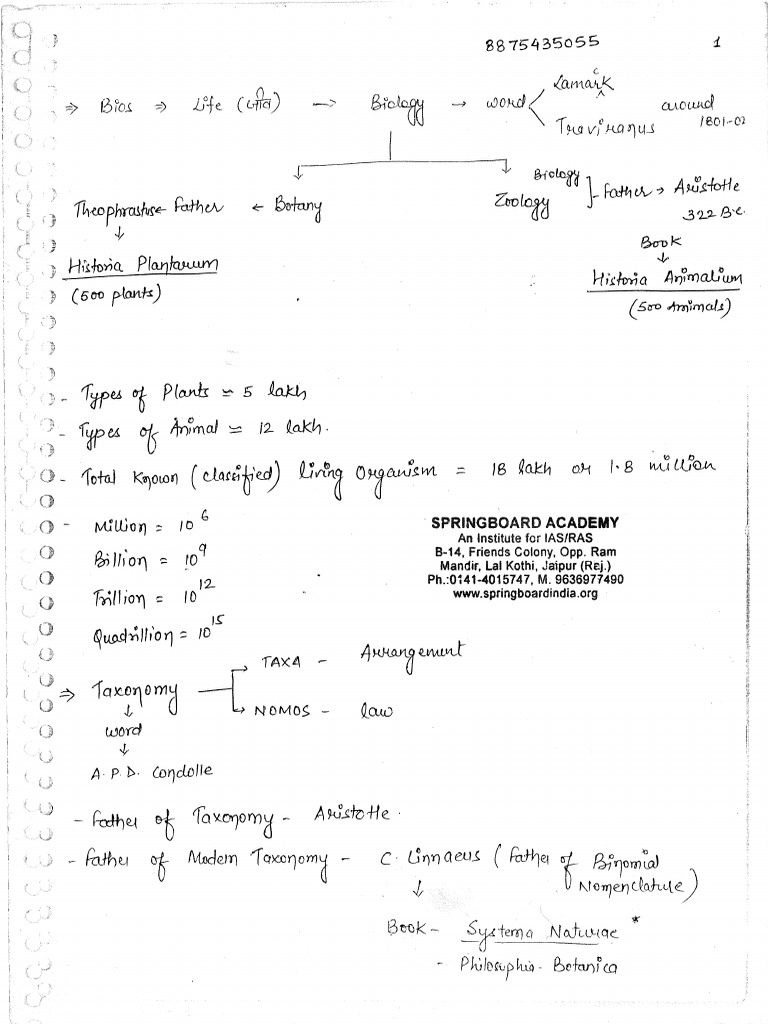 8875435055 1
⇒ Bios ⇒ Life (जीव) → Biology → word Lamarck
Treviranus
around 1801-02
Theophrastus ← Father ← Botany
Biology
Zoology ] Father → Aristotle
322 B.C.
↓
Book
↓
Historia Plantarum
(500 plants)
Historia Animalium
(500 Animals)
- Types of Plants ≃ 5 lakh
- Types of Animal ≃ 12 lakh.
- Total Known (classified) living Organism = 18 lakh or 1.8 million
- Million = 10⁶
Billion = 10⁹
Trillion = 10¹²
Quadrillion = 10¹⁵
SPRINGBOARD ACADEMY
An Institute for IAS/RAS
B-14, Friends Colony, Opp. Ram
Mandir, Lal Kothi, Jaipur (Rej.)
Ph.:0141-4015747, M. 9636977490
www.springboardindia.org
⇒ Taxonomy
TAXA - Arrangement
NOMOS - law
↓
word
↓
A.P.D. Condolle
- Father of Taxonomy - Aristotle.
- Father of Modern Taxonomy - C. Linnaeus (Father of Binomial
Nomenclature)
↓
Book - Systema Naturae *
- Philosophia - Botanica